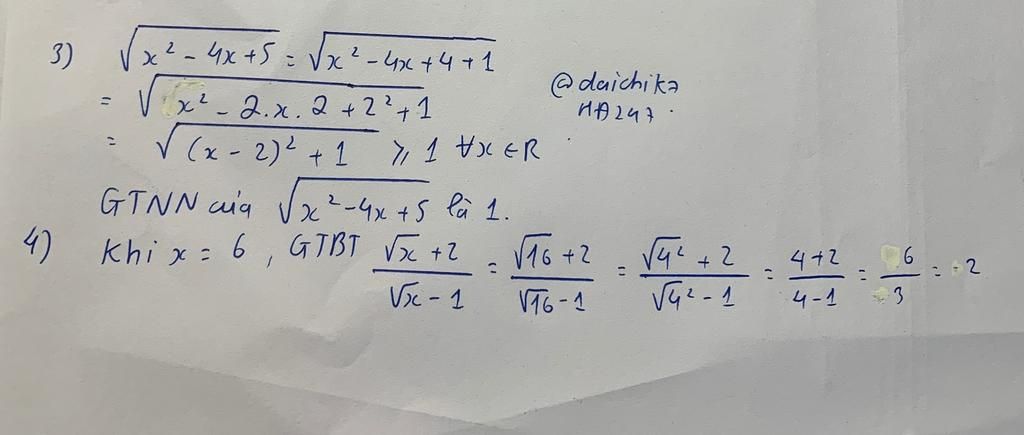 3) √(x² - 4x + 5) = √(x² - 4x + 4 + 1)
= √(x² - 2.x.2 + 2² + 1)
= √((x - 2)² + 1) ≥ 1 ∀x ∈ R
@daichika
HA247.
GTNN của √(x² - 4x + 5) là 1.
4) Khi x = 6, GTBT (√x + 2)/(√x - 1) = (√16 + 2)/(√16 - 1) = (√4² + 2)/(√4² - 1) = (4 + 2)/(4 - 1) = 6/3 = 2